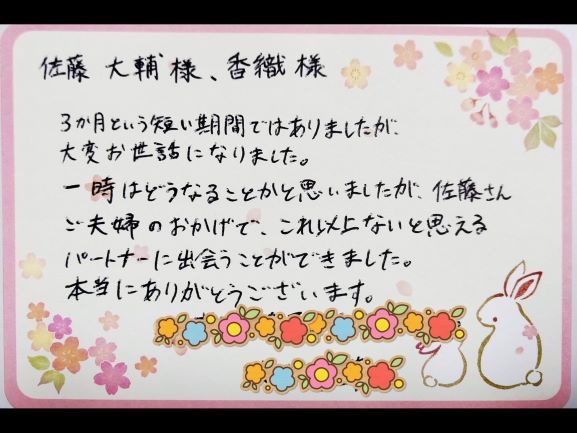 佐藤 大輔様、香織様
3か月という短い期間ではありましたが、
大変お世話になりました。
一時はどうなることかと思いましたが、佐藤さん
ご夫婦のおかげで、これ以上ないと思える
パートナーに出会うことができました。
本当にありがとうございます。